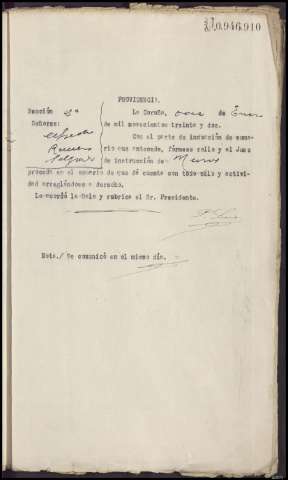 0.946.910
PROVIDENCIA.
Sección 2ª La Coruña, once de Enero
Señores: de mil novecientos treinta y dos.
Con el parte de incoación de suma-
rio que antecede, fórmese rollo y el Juez
de instrucción de Muros
proceda en el sumario de que dá cuenta con todo celo y activi-
dad arreglándose a derecho.
Lo acordó la Sala y rubrica el Sr. Presidente.
Nota./ Se comunicó en el mismo día.